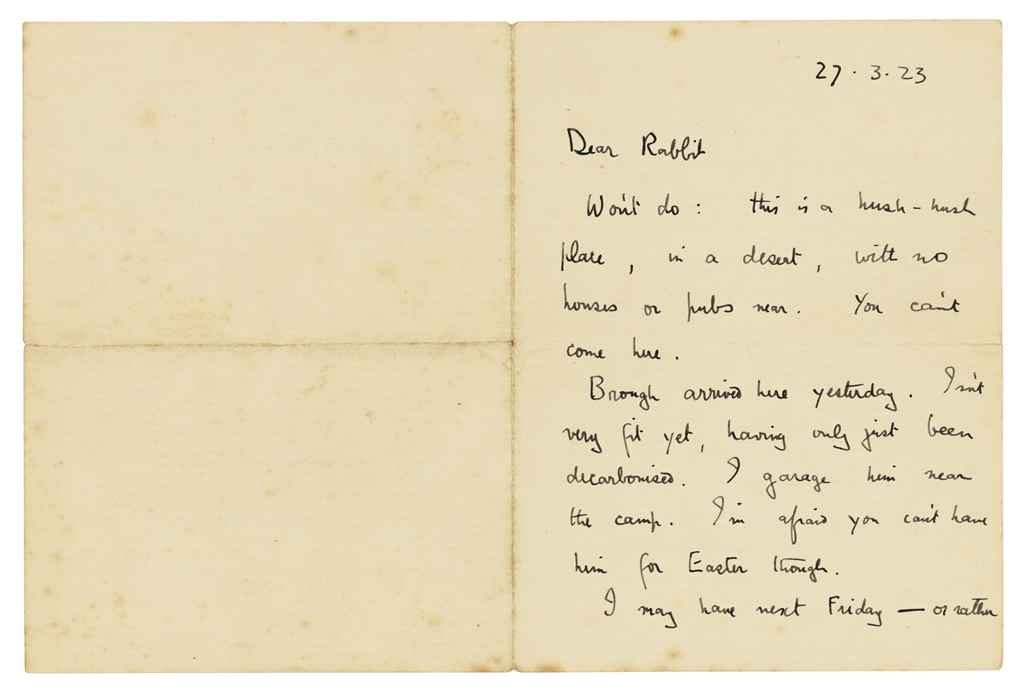 27.3.23
Dear Rabbit
Won't do: this is a hush-hush
place, in a desert, with no
houses or pubs near. You can't
come here.
Brough arrived here yesterday. Isn't
very fit yet, having only just been
decarbonised. I garage him near
the camp. I'm afraid you can't have
him for Easter though.
I may have next Friday — or rather